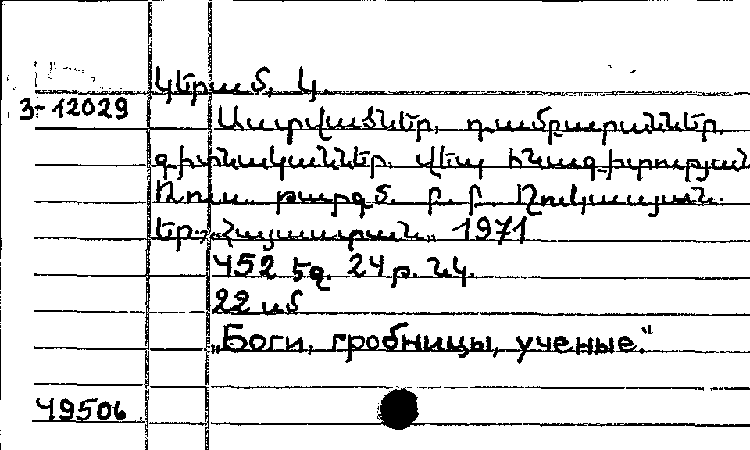 Կերամ, Կ.
3-12029
Աստվածներ, դամբարաններ,
գիտնականներ. վեպ հնագիտության
Ռուս. թարգմ. Բ. Բ. Ղուկասյան.
Եր., „Հայաստան„ 1971
452 էջ. 24 թ. նկ.
22 սմ
„Боги, гробницы, ученые.“
49506